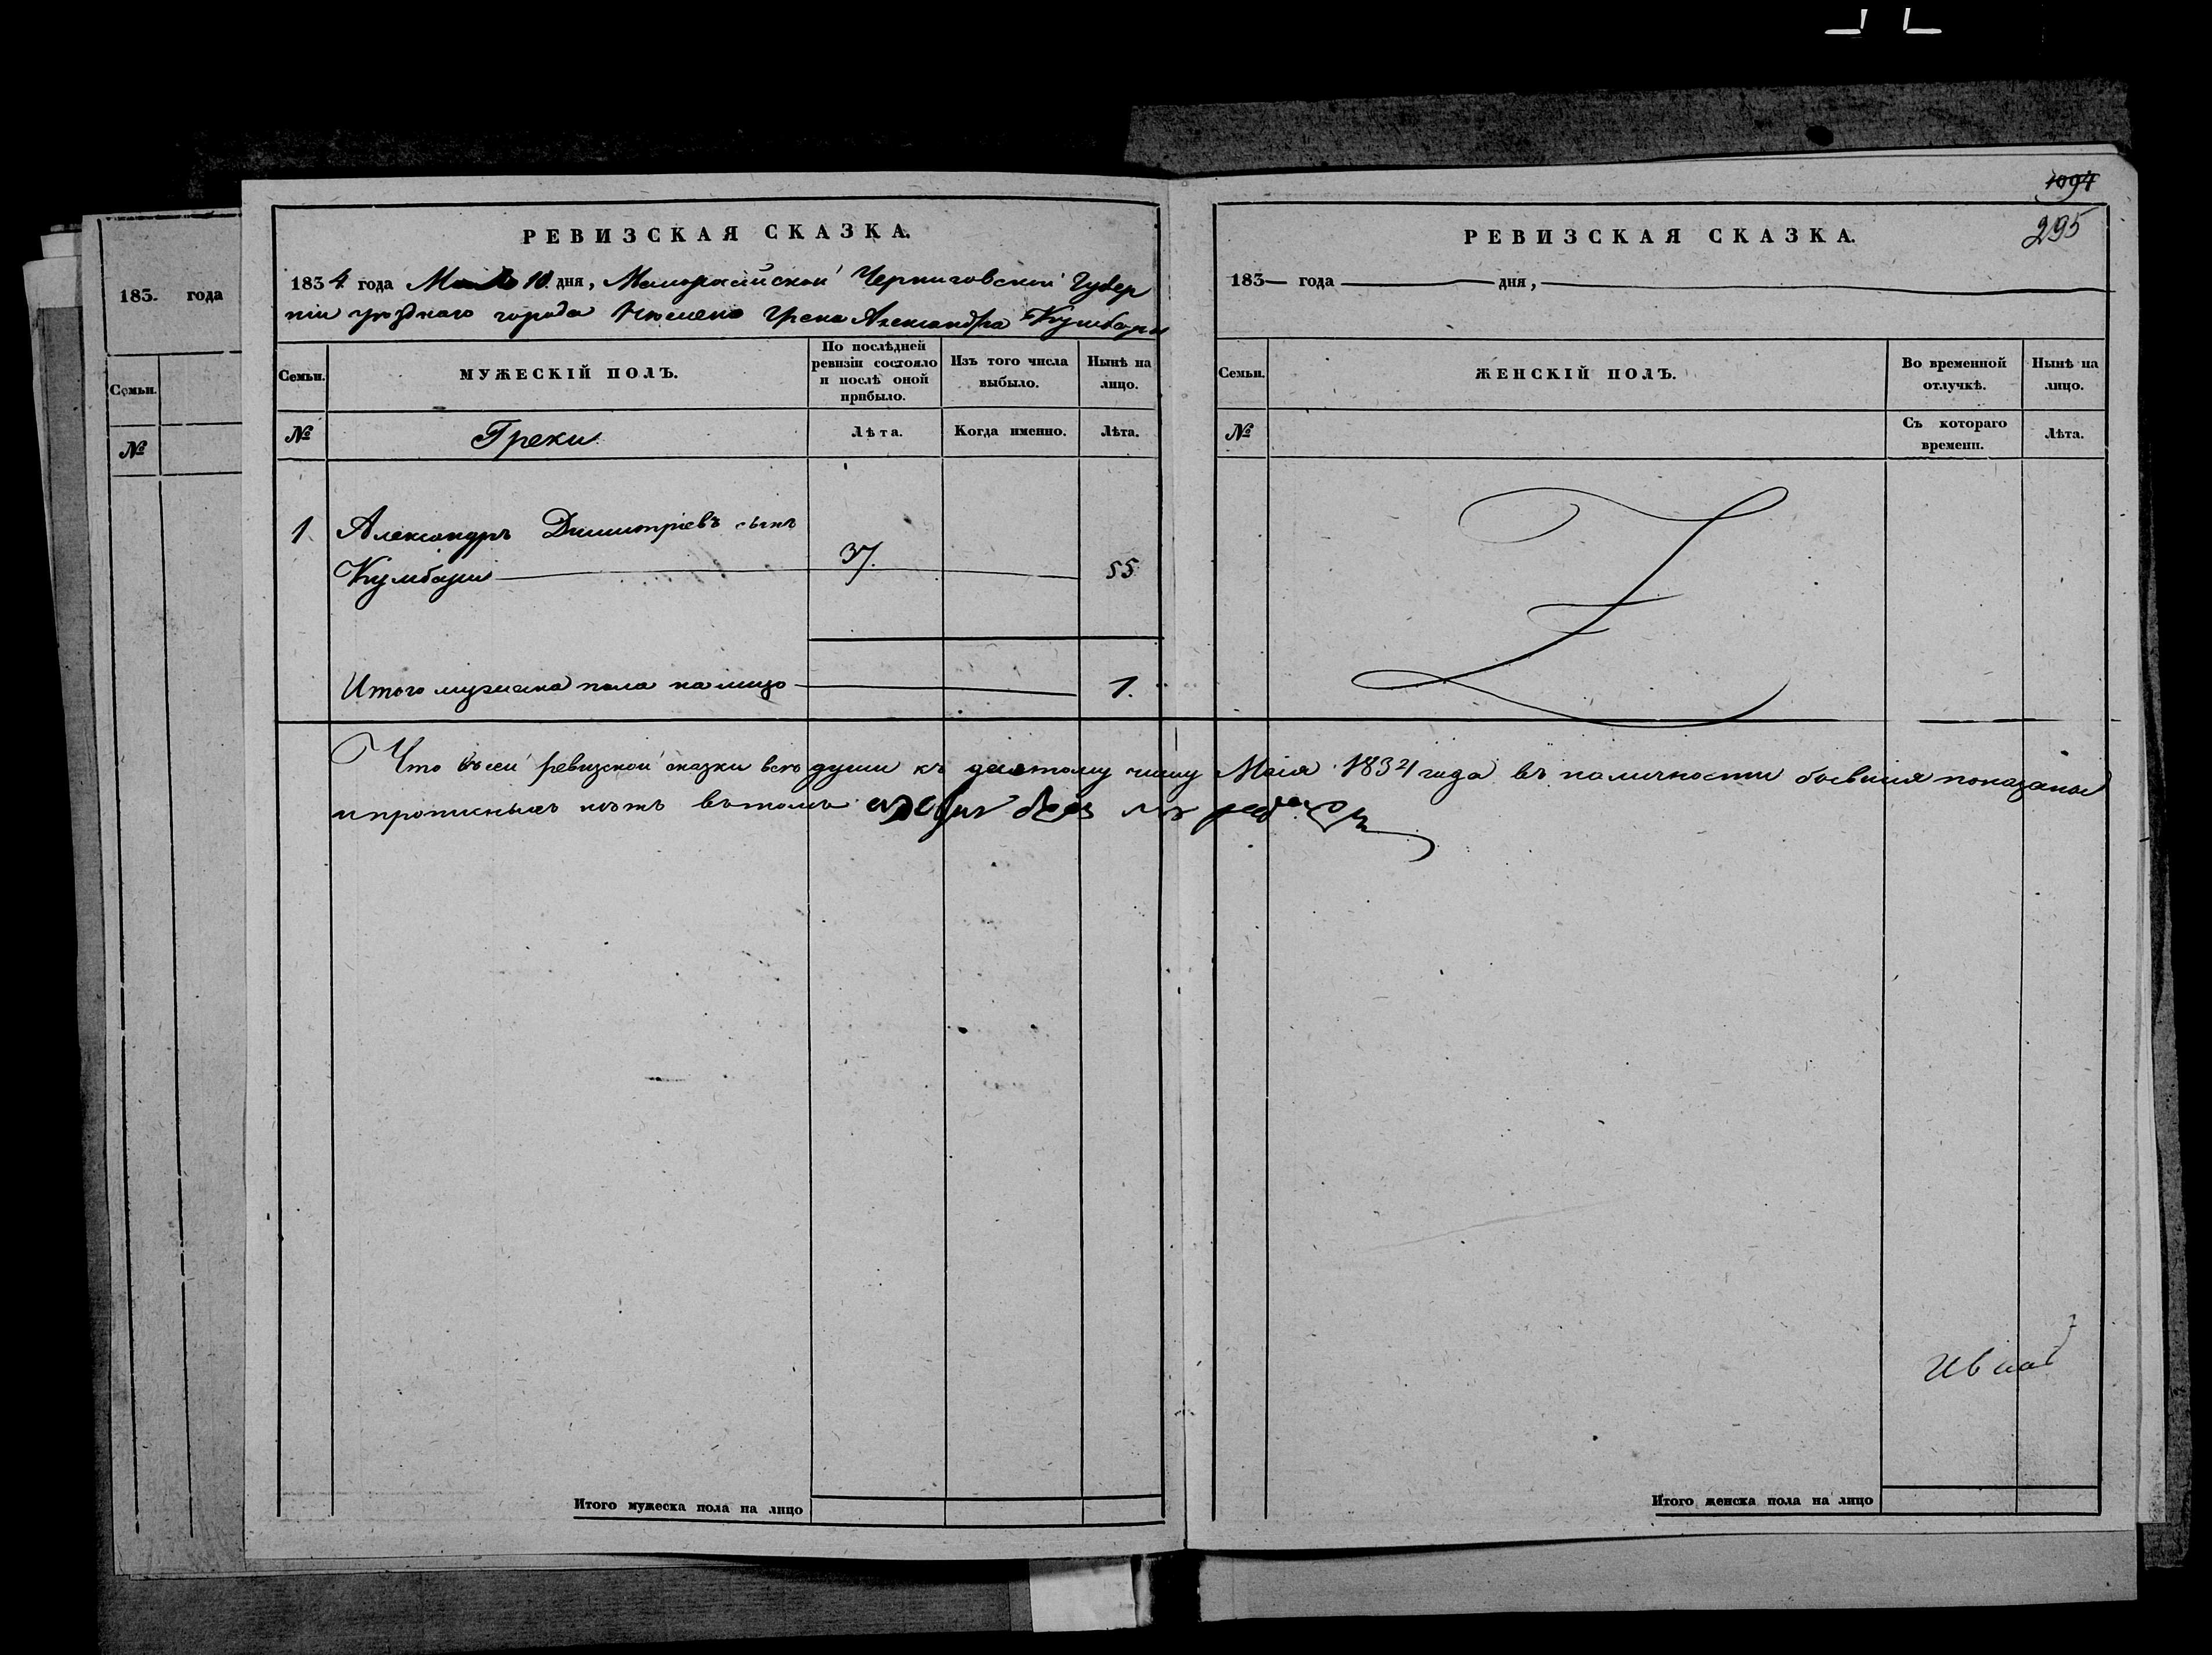 183. года
Семьи.
№
РЕВИЗСКАЯ СКАЗКА.
1834 года Мая 10 дня, Малороссійской Черниговской Губер
ніи уѣзднаго города Нѣжина Грека Александра Кумбари
Семьи.
МУЖЕСКІЙ ПОЛЪ.
По послѣдней ревизіи состояло и послѣ оной прибыло.
Изъ того числа выбыло.
Нынѣ на лицо.
№
Греки
Лѣта.
Когда именно.
Лѣта.
1. Александръ Димитріевъ сынъ
Кумбари 37. 55
Итого мужеска пола на лицо 1.
Что въ сей ревизской сказки всѣ души къ десятому числу Маія 1834 года въ наличности бывшія показаны
и прописныхъ нѣтъ въ томъ
Итого мужеска пола на лицо
1094
295
РЕВИЗСКАЯ СКАЗКА.
183— года дня,
Семьи.
ЖЕНСКІЙ ПОЛЪ.
Во временной отлучкѣ.
Нынѣ на лицо.
№
Съ котораго времени.
Лѣта.
Итого женска пола на лицо